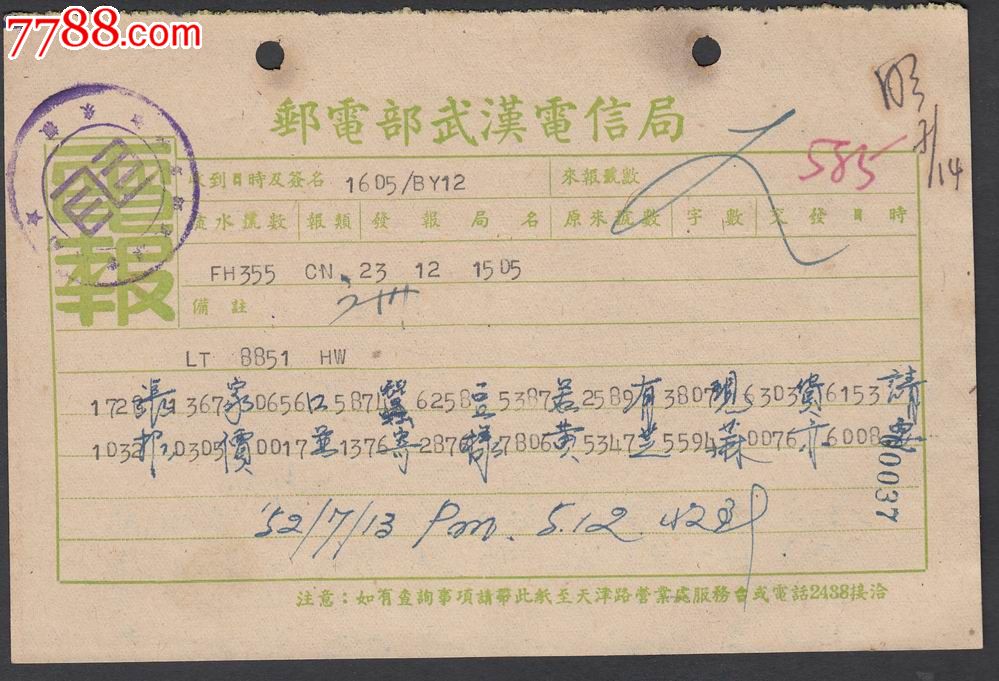 7788.com
郵電部武漢電信局
電報
收到日時及簽名 1605/BY12 來報號數 585
流水號數 報類 發報局名 原來號數 字數 交發日時
FH355 CN 23 12 1505
備註
LT 8851 HW
1728張 1367家 0656口 5871蠶 6258豆 5387若 2589有 3807現 6303貨 6153請
1032 0305價 0017並 1376寄 2876樣 7806黃 5347芝 5594蔴 0076亦 6008要
00037
'52/7/13 Pm. 5.12
7/14
注意：如有查詢事項請帶此紙至天津路營業處服務台或電話2438接洽